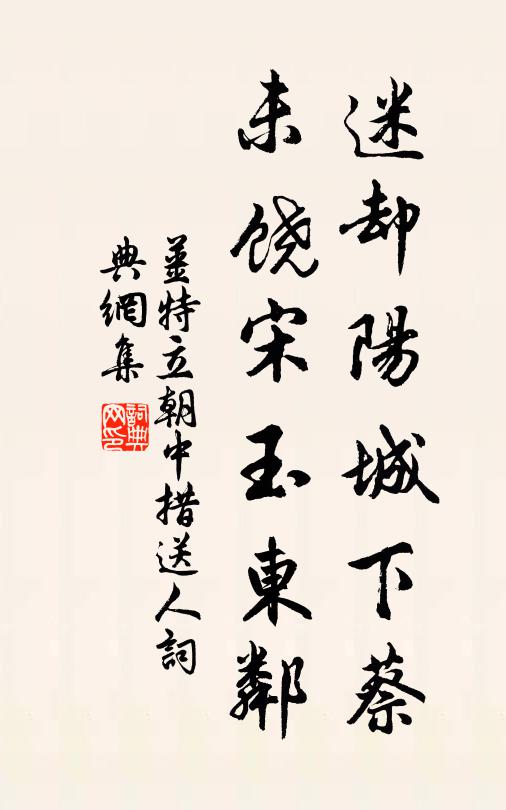 迷却陽城下蔡
未饒宋玉東鄰
姜特立朝中措送人詞
典網集
詞典
网印